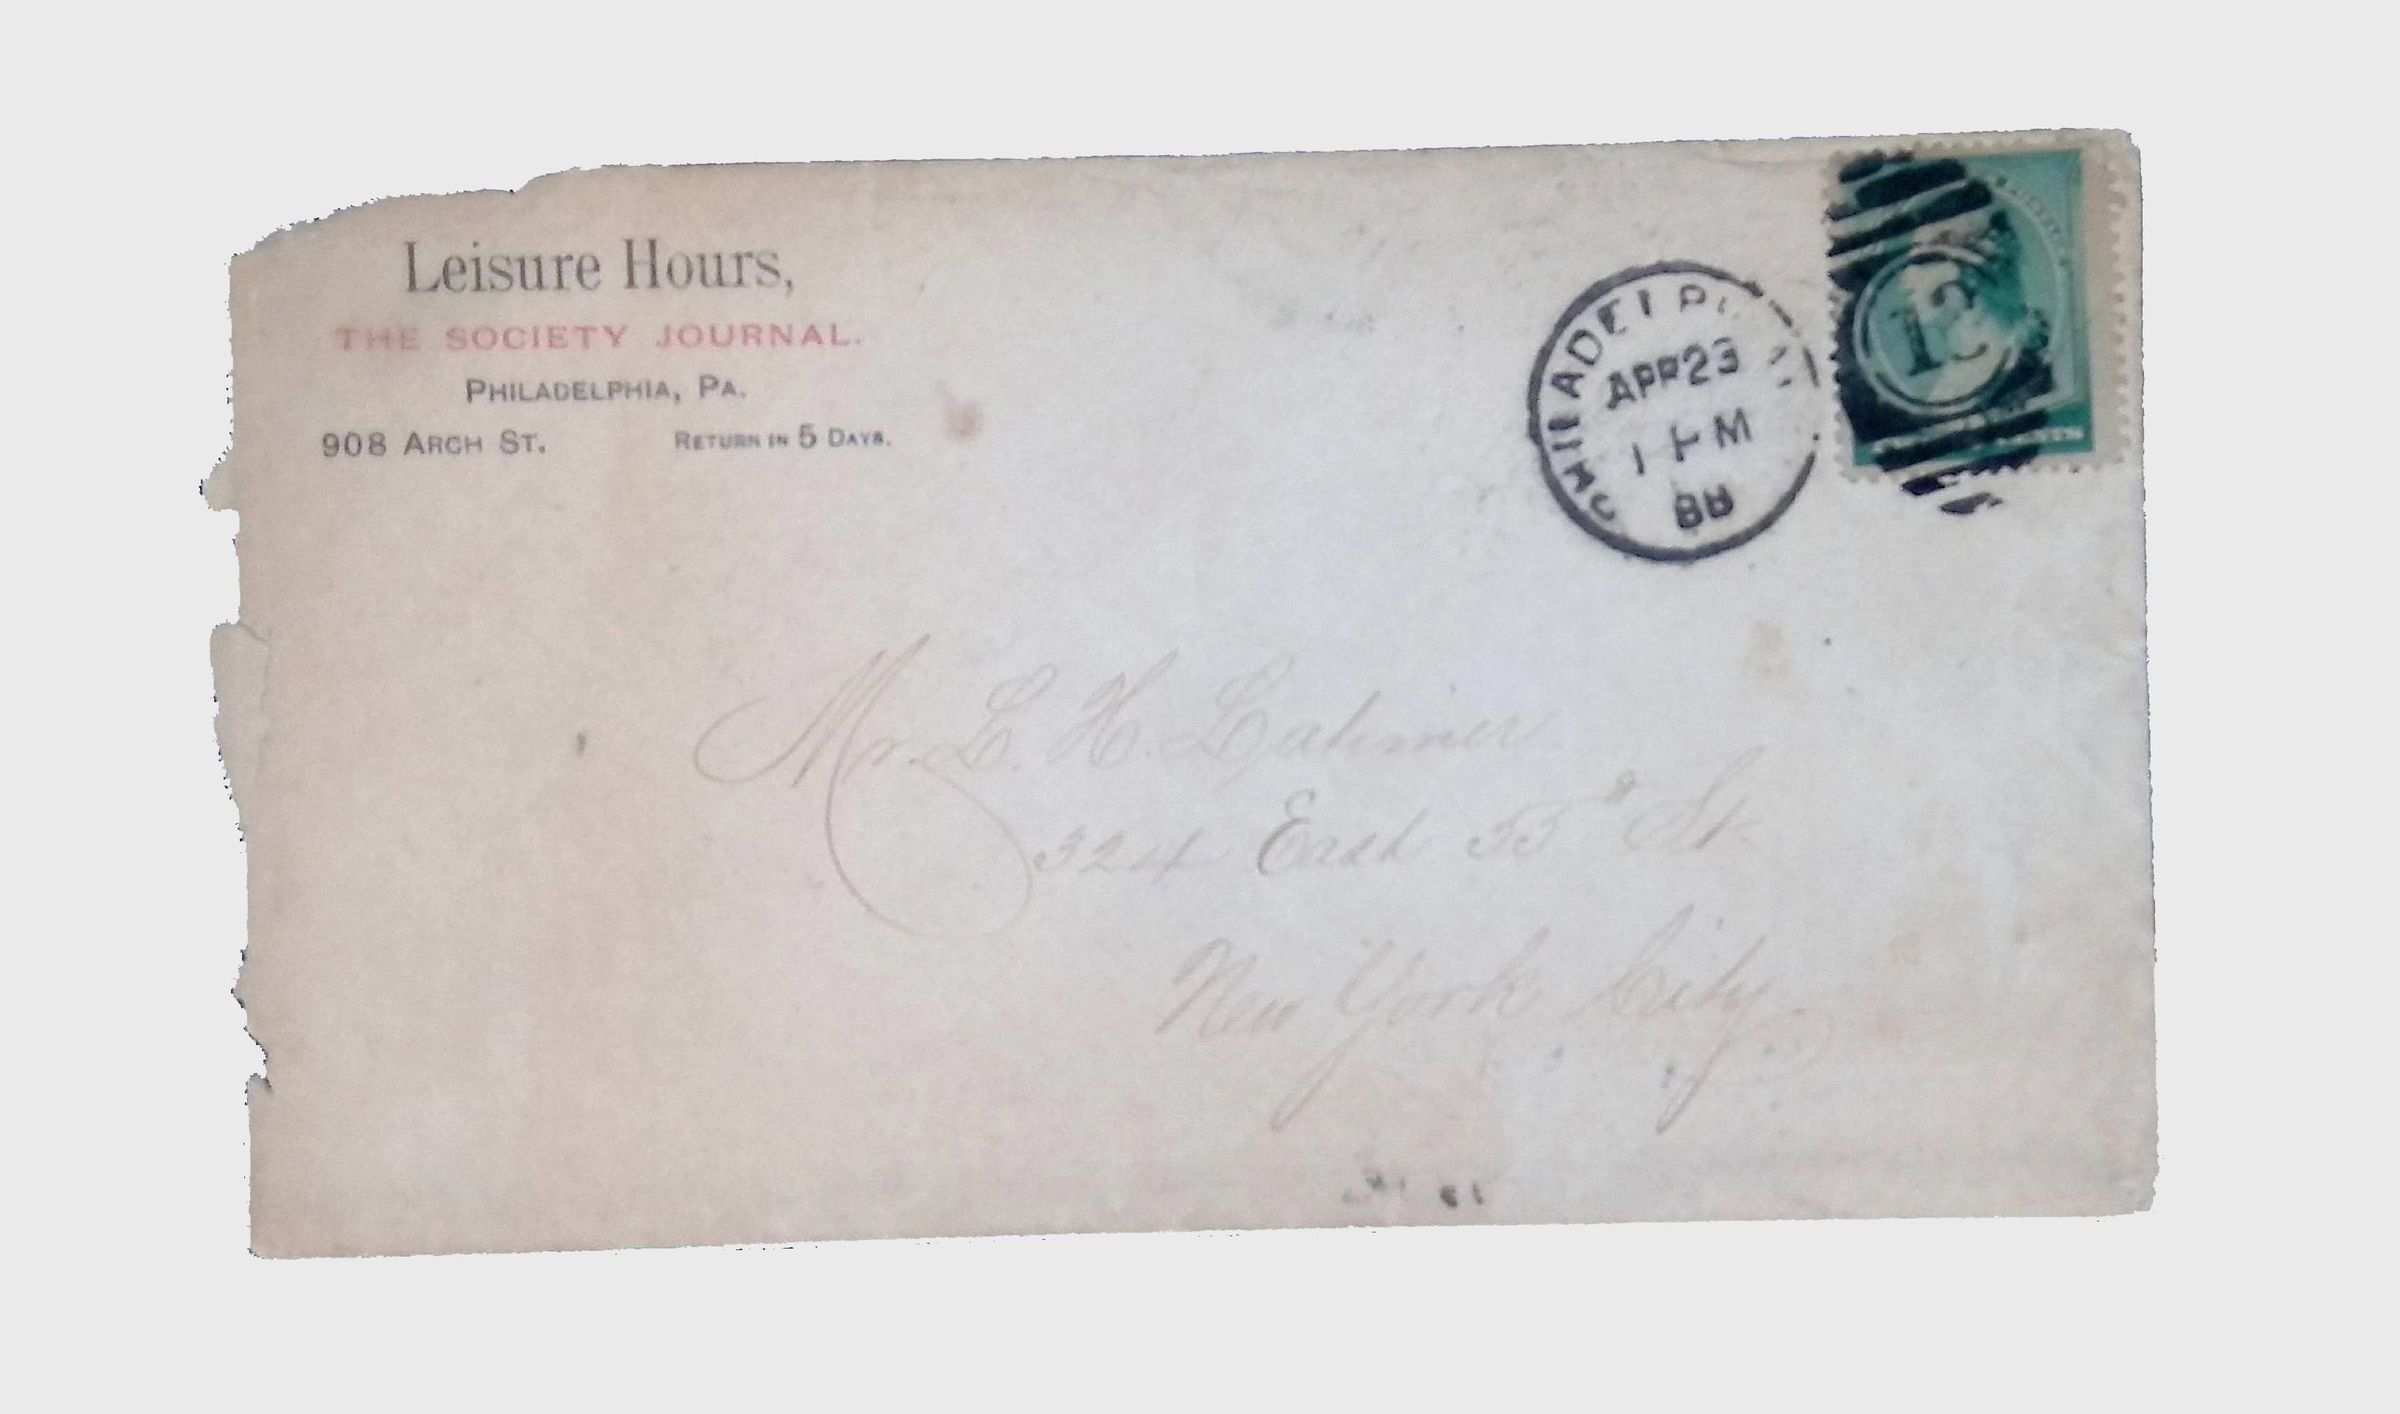 Leisure Hours,
THE SOCIETY JOURNAL.
PHILADELPHIA, PA.
908 ARCH ST. RETURN IN 5 DAYS.
PHILADELPHIA
APR 23
1 PM
88
12
Mr. L. H. Latimer
324 East 55th St.
New York City.